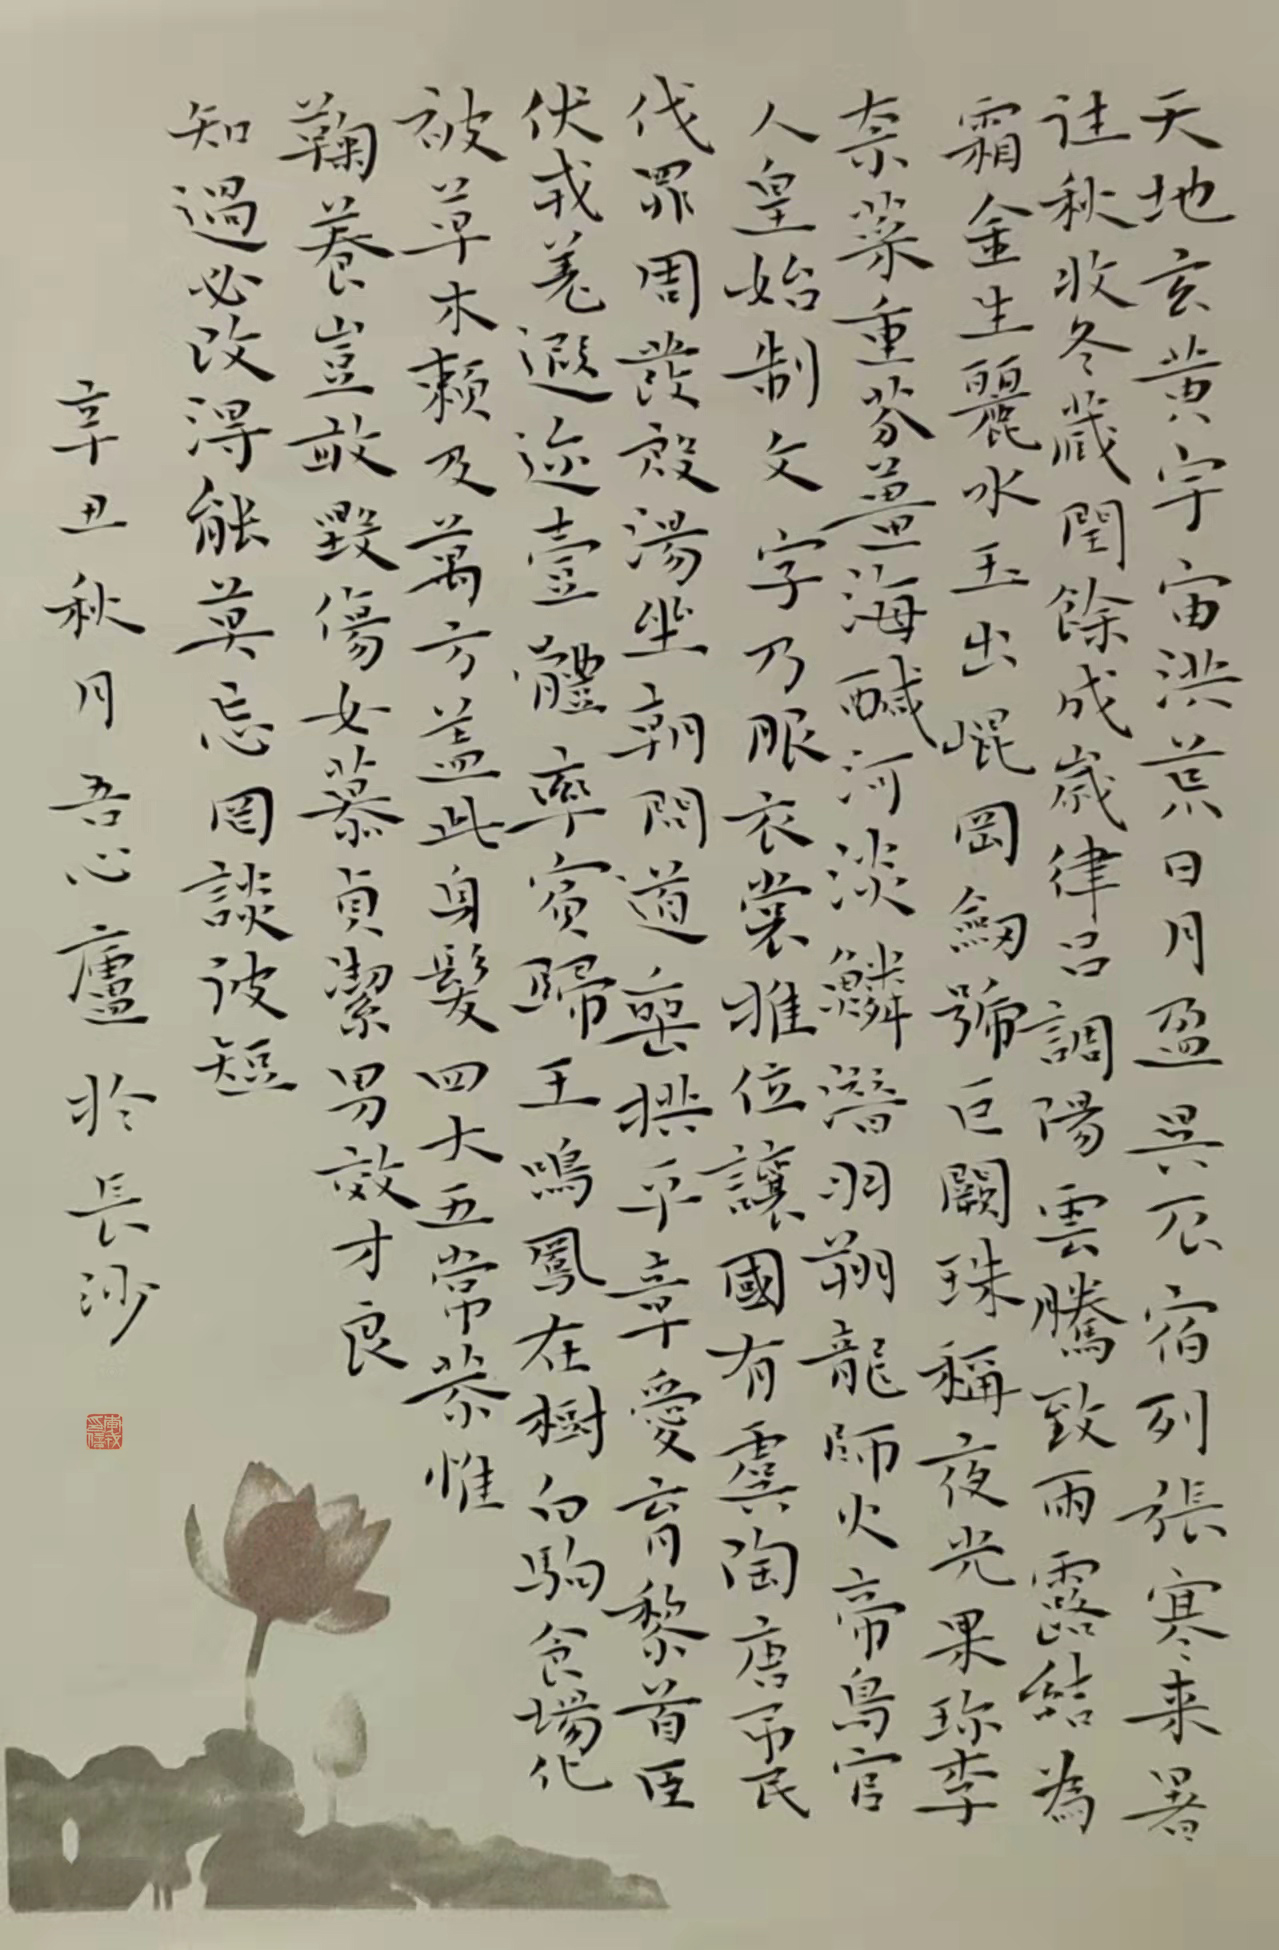 天地玄黄宇宙洪荒日月盈昃辰宿列張寒来暑
往秋收冬藏閏餘成嵗律吕調陽雲騰致雨露結為
霜金生麗水玉出崐岡劒號巨闕珠稱夜光果珎李
柰菜重芬薑海醎河淡鱗潛羽翔龍師火帝鳥官
人皇始制文字乃服衣裳推位讓國有虞陶唐吊民
伐罪周發殷湯坐朝問道垂拱平章愛育黎首臣
伏戎羌遐迩壹體率賓歸王鳴鳳在樹白駒食場化
被草木賴及萬方蓋此身髮四大五常恭惟
鞠養豈敢毀傷女慕貞潔男效才良
知過必改得能莫忘罔談彼短
辛丑秋月吾心廬於長沙